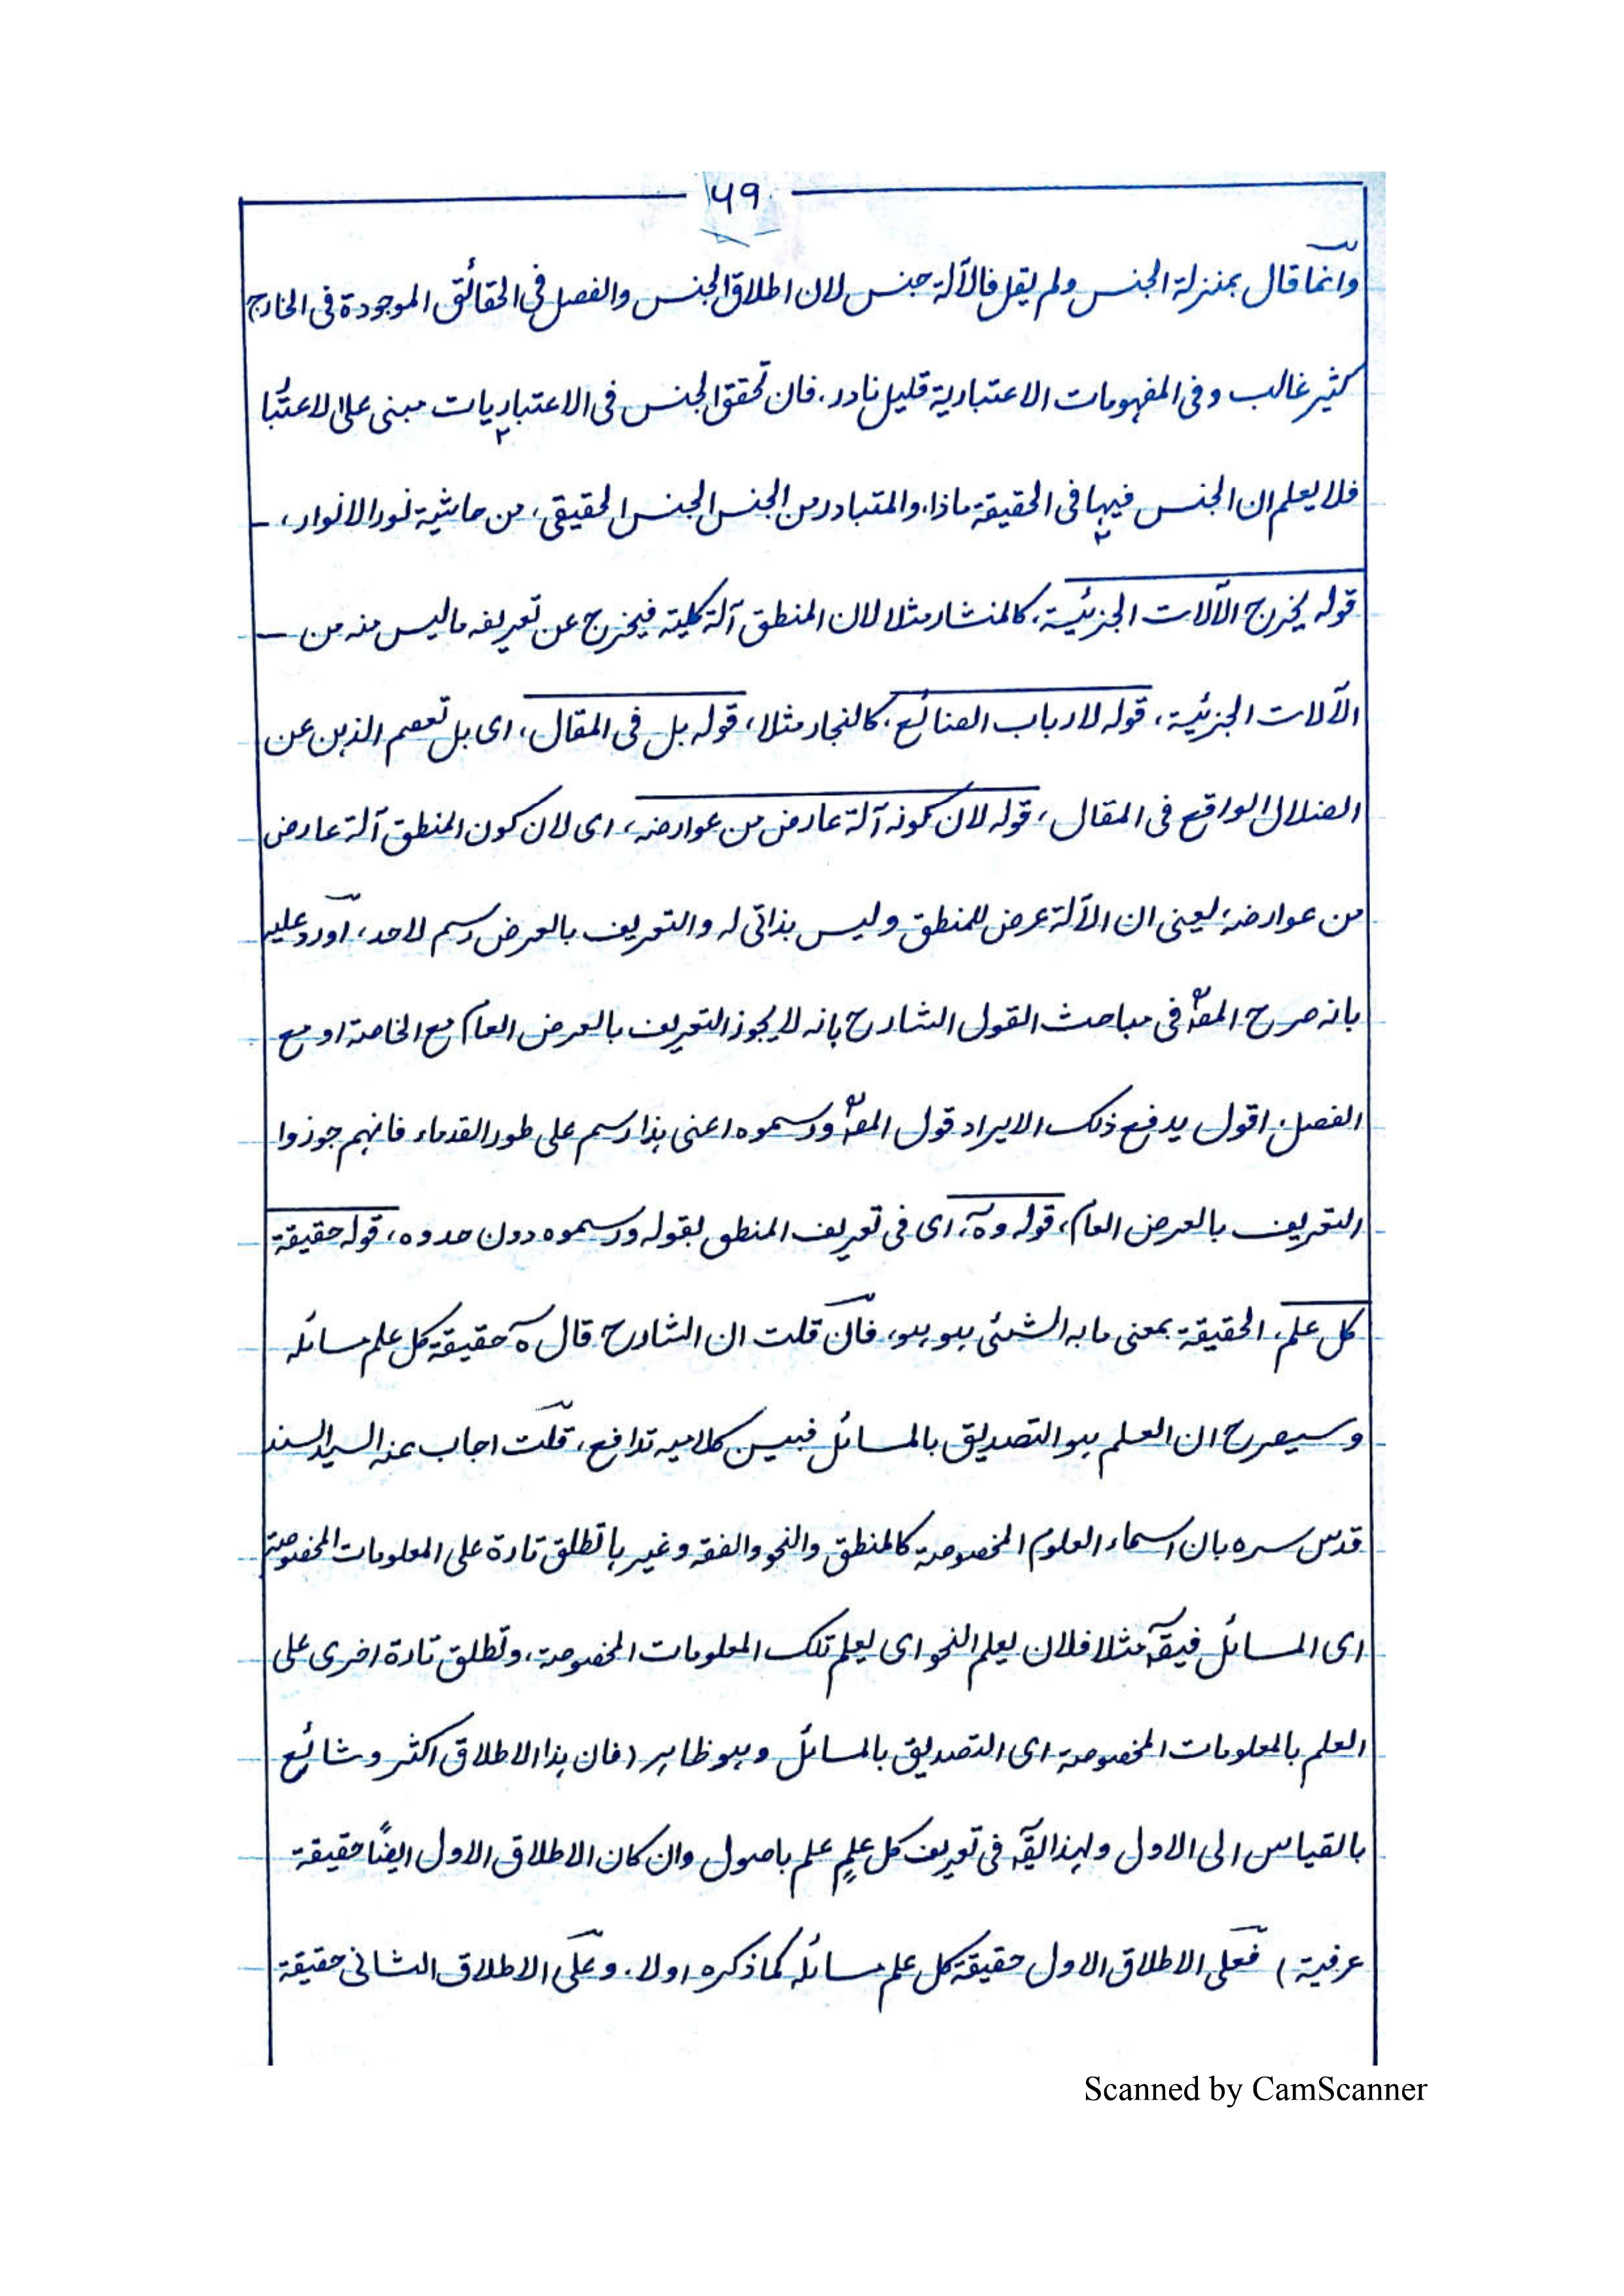 ۶۹
وانما قال بمنزلة الجنس ولم يقل فالآلة جنس لان اطلاق الجنس والفصل فى الحقائق الموجودة فى الخارج
كثير غالب وفى المفهومات الاعتبارية قليل نادر، فان تحقق الجنس فى الاعتباريات مبنى على الاعتبار
فلا يعلم ان الجنس فيها فى الحقيقة ماذا، والمتبادر من الجنس الجنس الحقيقى، من حاشية نور الانوار،
قوله يخرج الآلات الجزئية، كالمنشار مثلا لان المنطق آلة كلية فيخرج عن تعريفه ما ليس منه من
الآلات الجزئية، قوله لارباب الصنائع، كالنجار مثلا، قوله بل فى المقال، اى بل تعصم الذهن عن
الضلال الواقع فى المقال، قوله لان كونه آلة عارض من عوارضه، اى لان كون المنطق آلة عارض
من عوارضه، يعنى ان الآلة عرض للمنطق وليس بذاتى له والتعريف بالعرض رسم لا حد، اورد عليه
بانه صرح المصؒ فى مباحث القول الشارح بانه لا يجوز التعريف بالعرض العام مع الخاصة او مع
الفصل، اقول يدفع ذلك الايراد قول المصؒ ورسموه اعنى هذا رسم على طور القدماء فانهم جوزوا
التعريف بالعرض العام، قوله وهٓ، اى فى تعريف المنطق بقوله ورسموه دون حدوه، قوله حقيقة
كل علم، الحقيقة بمعنى ما به الشئى هو هو، فان قلت ان الشارح قال هٓ حقيقة كل علم مسائله
وسيصرح ان العلم هو التصديق بالمسائل فبين كلاميه تدافع، قلت اجاب عنه السيد السند
قدس سره بان اسماء العلوم المخصوصة كالمنطق والنحو والفقه وغيرها تطلق تارة على المعلومات المخصوصة
اى المسائل فيقآ مثلا فلان يعلم النحو اى يعلم تلك المعلومات المخصوصة، وتطلق تارة اخرى على
العلم بالمعلومات المخصوصة اى التصديق بالمسائل وهو ظاهر (فان هذا الاطلاق اكثر وشائع
بالقياس الى الاول ولهذا يقآ فى تعريف كل علمٍ علم باصول وان كان الاطلاق الاول ايضًا حقيقة
عرفية) فعلى الاطلاق الاول حقيقة كل علم مسائله كما ذكره اولا، وعلى الاطلاق الثانى حقيقة
Scanned by CamScanner